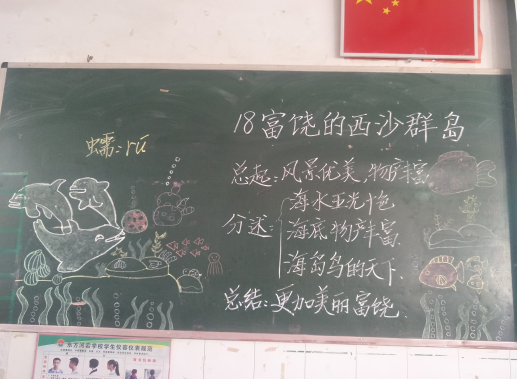 18富饶的西沙群岛
蠕:rú
总起:风景优美,物产丰富
分述:
海水五光十色
海底物产丰富
海岛鸟的天下.
总结:更加美丽富饶.